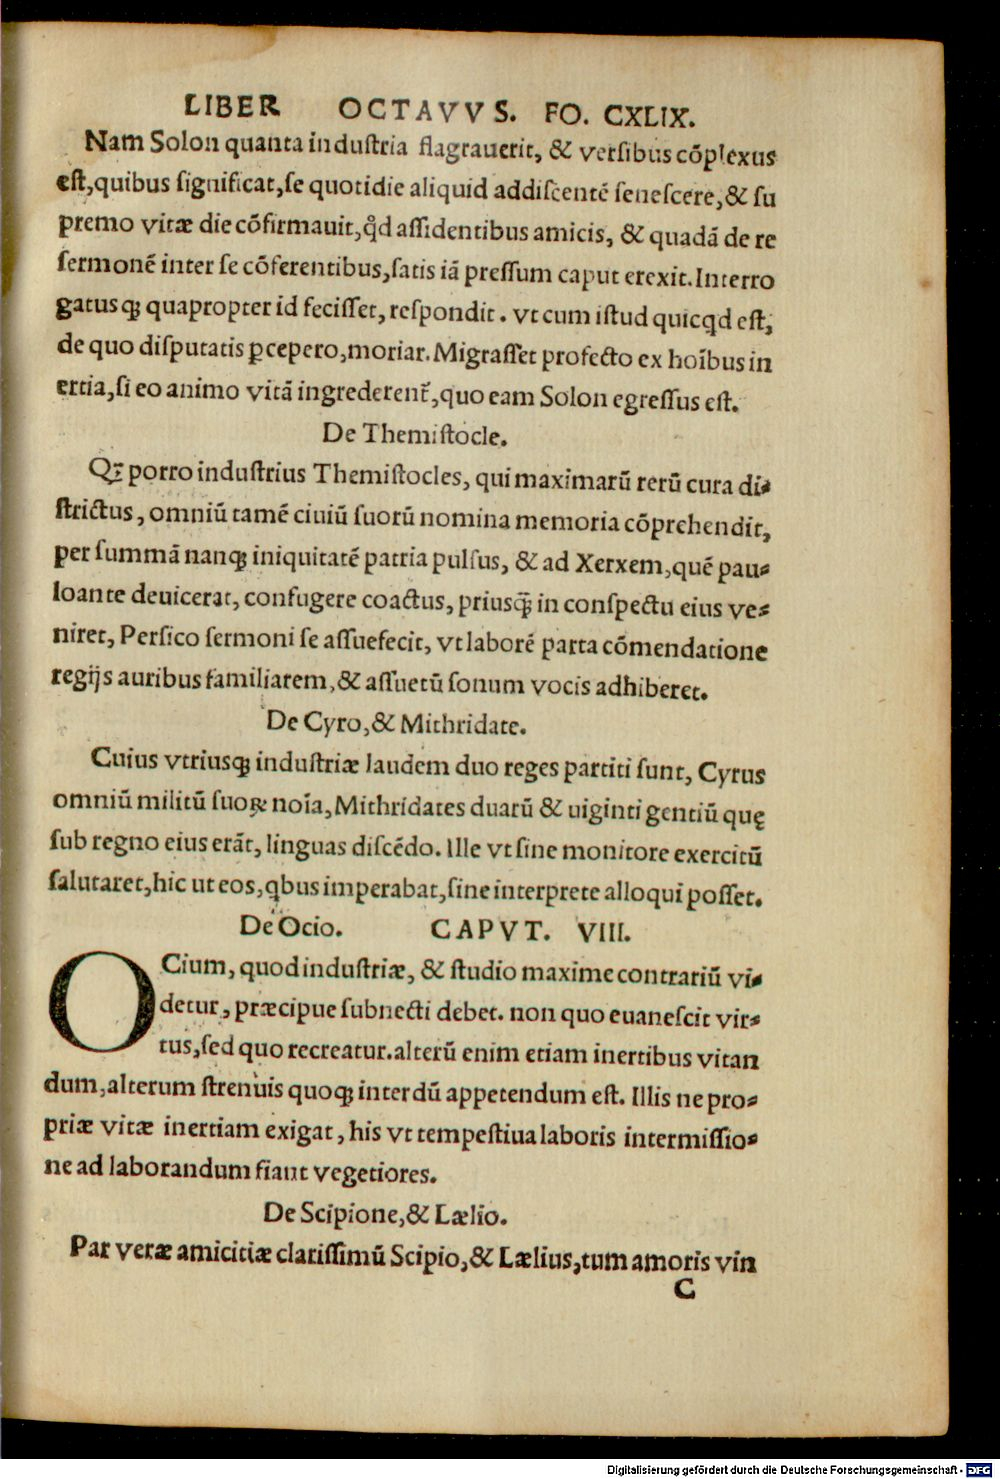 LIBER OCTAVVS. FO. CXLIX.
Nam Solon quanta industria flagrauerit, & versibus cõplexus
est,quibus significat,se quotidie aliquid addiscentẽ senescere,& su
premo vitæ die cõfirmauit,qd̉ assidentibus amicis, & quadã de re
sermonẽ inter se cõferentibus,satis iã pressum caput erexit.Interro
gatusqꝫ quapropter id fecisset, respondit. vt cum istud quicqd est,
de quo disputatis ꝑcepero,moriar. Migrasset profecto ex hoĩbus in
ertia,si eo animo vitã ingrederent̃,quo eam Solon egressus est.
De Themistocle.
Qꝫ porro industrius Themistocles, qui maximarũ rerũ cura di⸗
strictus, omniũ tamẽ ciuiũ suorũ nomina memoria cõprehendit,
per summã nanqꝫ iniquitatẽ patria pulsus, & ad Xerxem,quẽ pau⸗
loante deuicerat, confugere coactus, priusq̃ in conspectu eius ve⸗
niret, Persico sermoni se assuefecit, vt laborẽ parta cõmendatione
regijs auribus familiarem,& assuetũ sonum vocis adhiberet.
De Cyro,& Mithridate.
Cuius vtriusqꝫ industriæ laudem duo reges partiti sunt, Cyrus
omniũ militũ suoꝝ noĩa, Mithridates duarũ & uiginti gentiũ quę
sub regno eius erãt, linguas discẽdo. Ille vt sine monitore exercitũ
salutaret,hic ut eos,qbus imperabat,sine interprete alloqui posset.
De Ocio. CAPVT. VIII.
OCium, quod industriæ, & studio maxime contrariũ vi⸗
detur, præcipue subnecti debet. non quo euanescit vir⸗
tus,sed quo recreatur.alterũ enim etiam inertibus vitan
dum,alterum strenuis quoqꝫ interdũ appetendum est. Illis ne pro⸗
priæ vitæ inertiam exigat, his vt tempestiua laboris intermissio⸗
ne ad laborandum fiant vegetiores.
De Scipione,& Lælio.
Par veræ amicitiæ clarissimũ Scipio,& Lælius,tum amoris vin
C
Digitalisierung gefördert durch die Deutsche Forschungsgemeinschaft - DFG